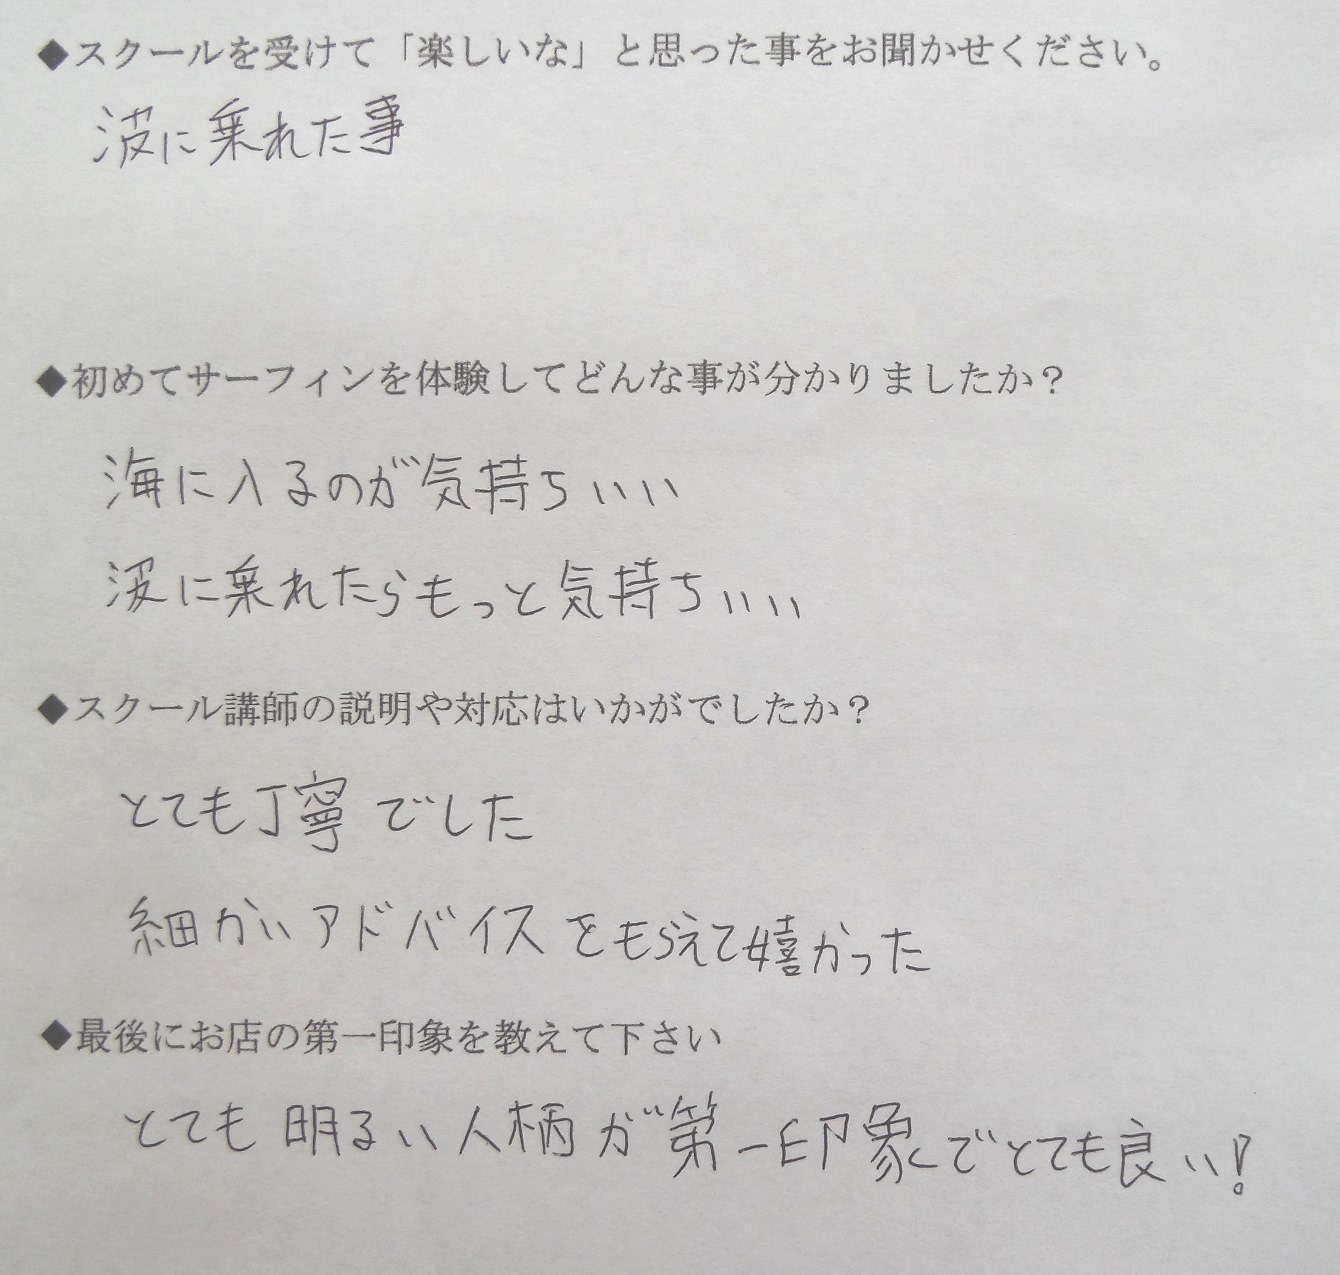 ◆スクールを受けて「楽しいな」と思った事をお聞かせください。
波に乗れた事
◆初めてサーフィンを体験してどんな事が分かりましたか？
海に入るのが気持ちいい
波に乗れたらもっと気持ちいい
◆スクール講師の説明や対応はいかがでしたか？
とても丁寧でした
細かいアドバイスをもらえて嬉かった
◆最後にお店の第一印象を教えて下さい
とても明るい人柄が第一印象でとても良い!